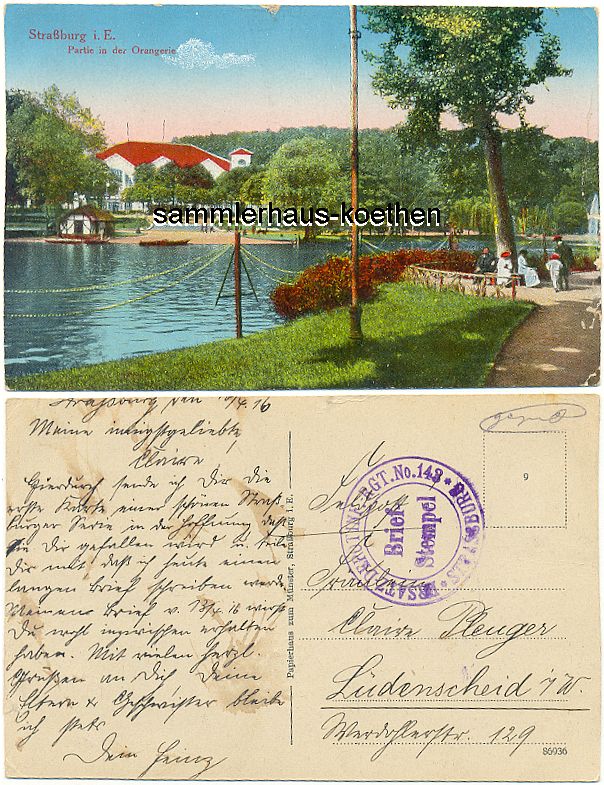 Straßburg i. E.
Partie in der Orangerie
sammlerhaus-koethen
Straßburg den 16/4.16
Meine innigstgeliebte
Claire
Hierdurch sende ich Dir die
erste Karte einer schönen Straß
burger Serie in der Hoffnung daß
sie Dir gefallen wird u. teile
Dir mit daß ich heute einen
langen Brief schreiben werde.
Meinen Brief v. 13/4.16 wirst
Du wohl inzwischen erhalten
haben. Mit vielen herzl.
Grüßen an Dich Deine
Eltern & Geschwister bleibe
ich stets
Dein Heinz
Papierhaus zum Münster, Straßburg i. E.
ERSATZ INF. RGT. No. 143 * STRASSBURG ELS. *
Brief
Stempel
9
Feldpost
Fräulein
Claire Plenger
Lüdenscheid i/W.
Werdohlerstr. 129
86936